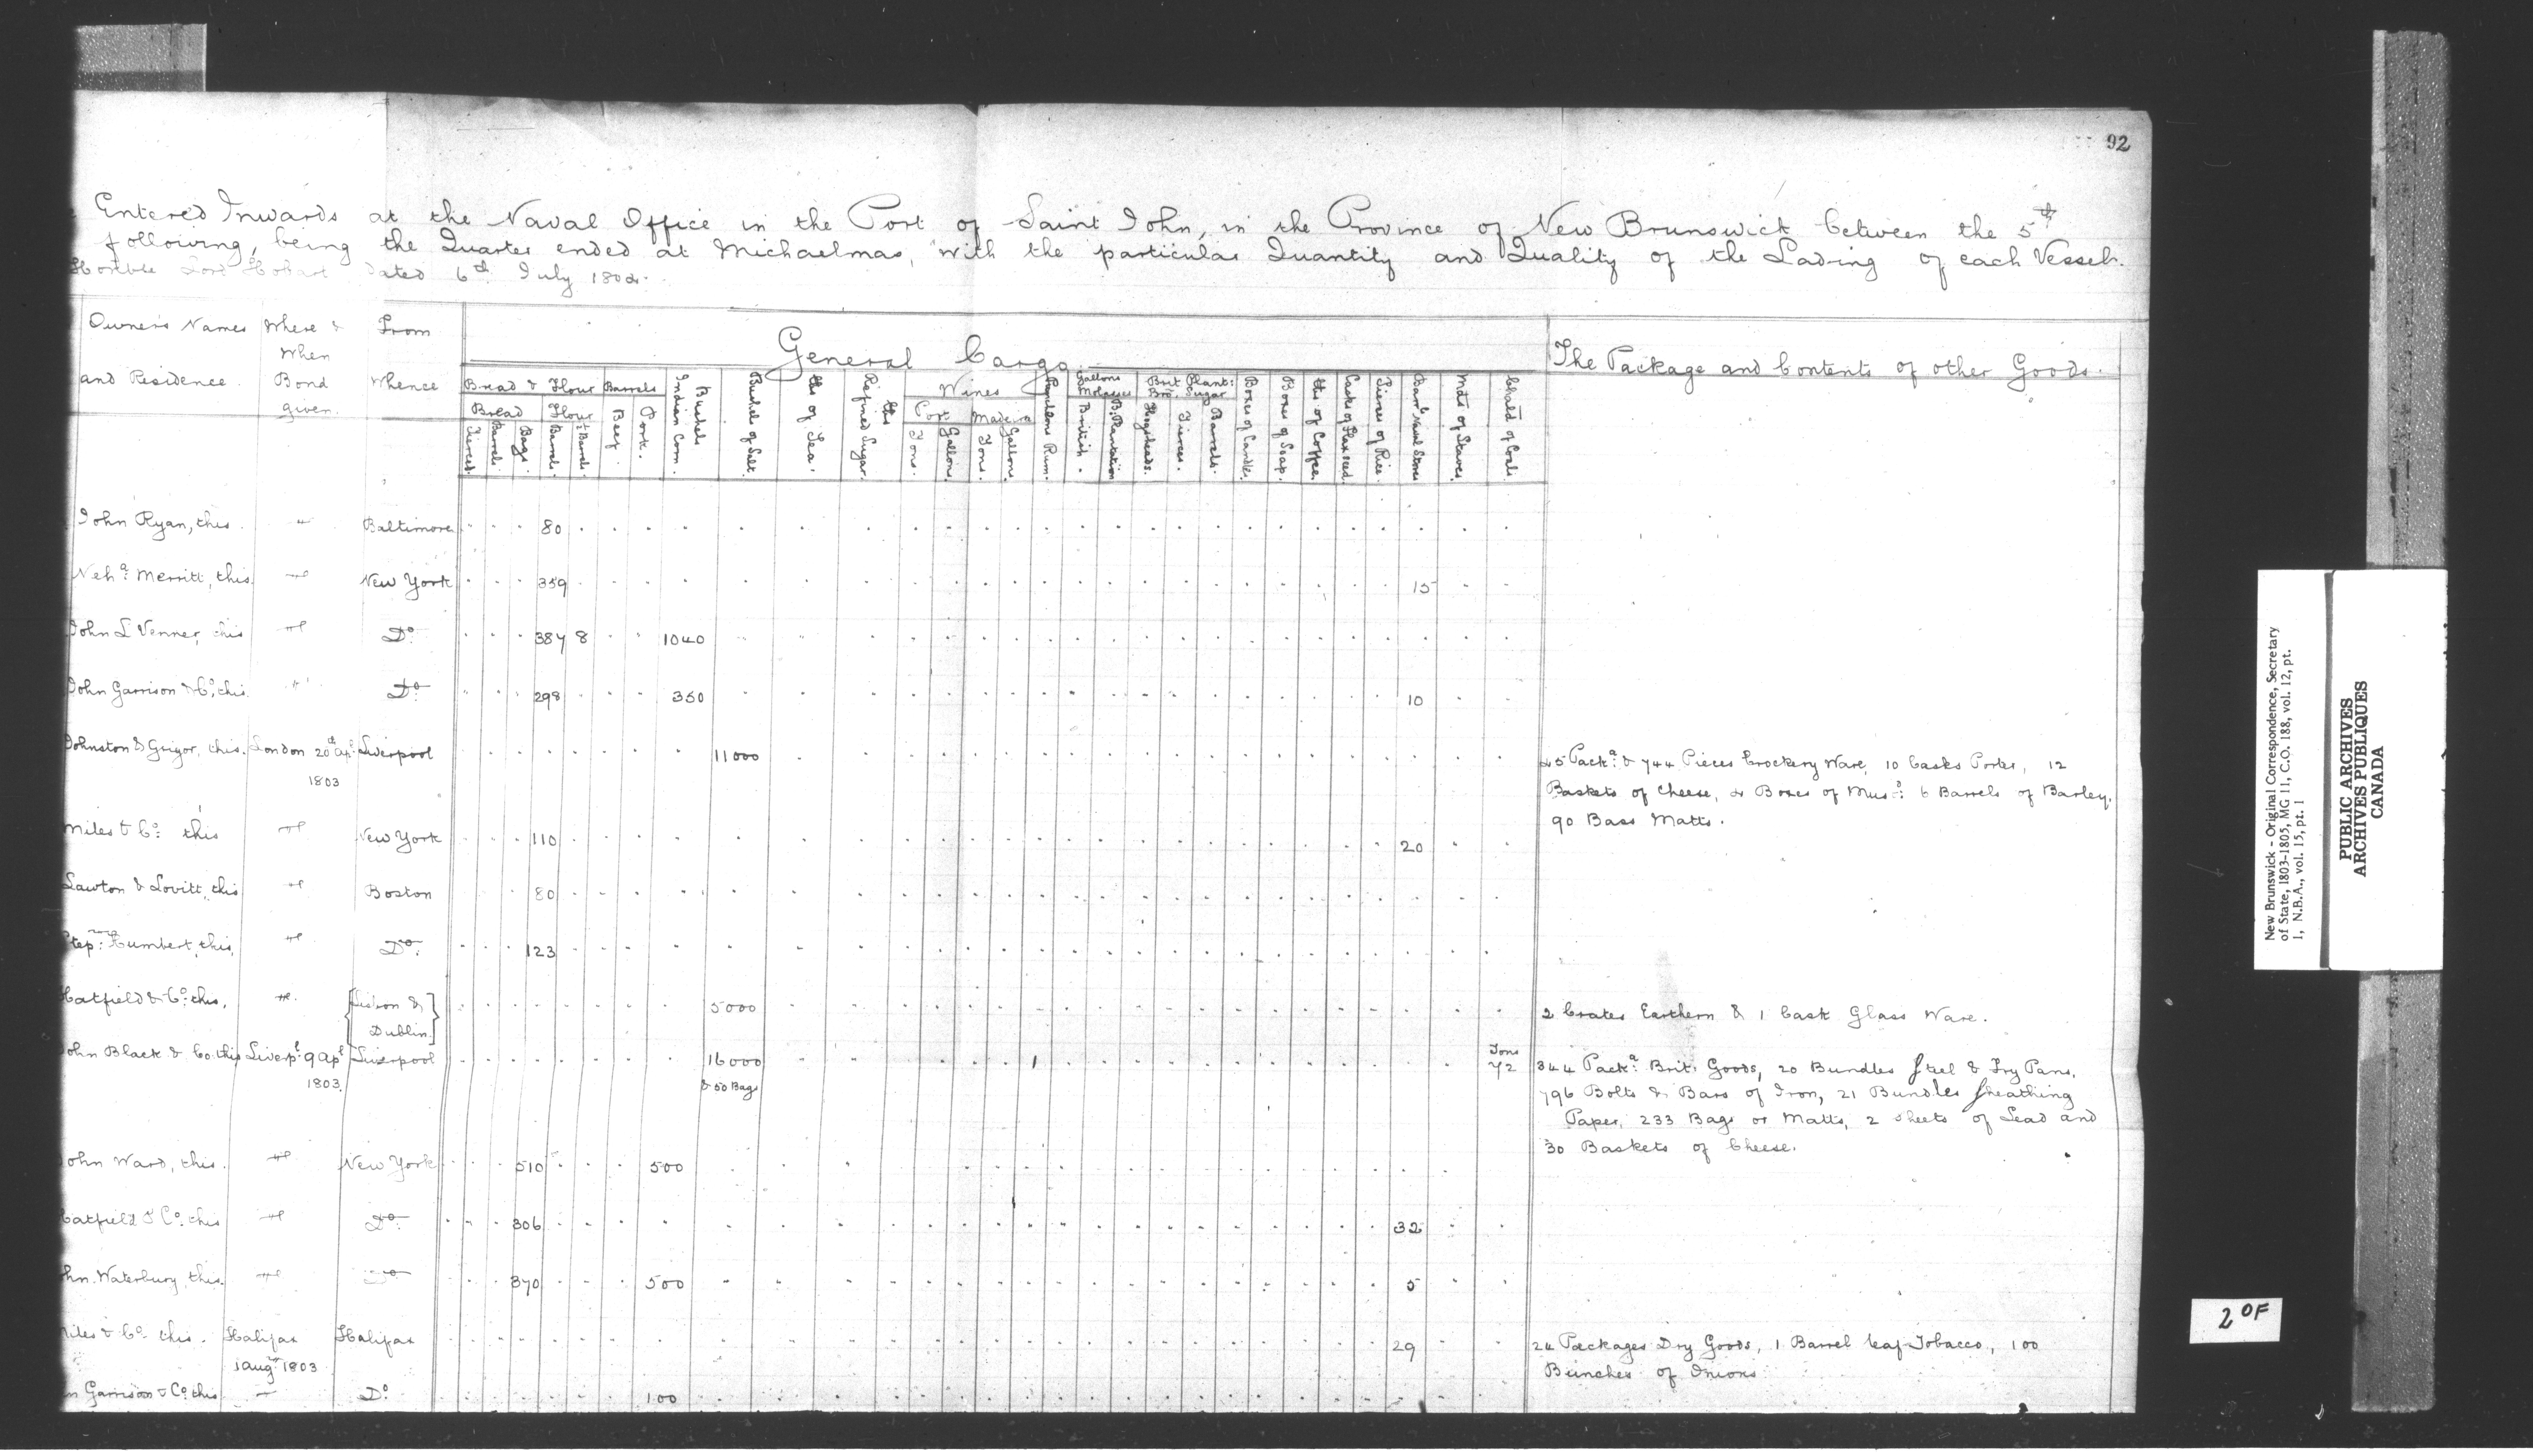 92
Entered Inwards at the Naval Office in the Port of Saint John, in the Province of New Brunswick between the 5th
following, being the Quarter ended at Michaelmas, with the particular Quantity and Quality of the Lading of each Vessel.
Honble Lord Hobart dated 6th July 1802.
Owners Names and Residence.
Where & When Bond given.
From Whence
General Cargo
The Package and Contents of other Goods.
Bread & Flour
Barrels
Bread
Flour
Tierces
Barrels
Bags
Barrels
½ Barrels
Beef
Pork
Bushels Indian Corn
Bushels of Salt
lbs of Tea
lbs Refined Sugar
Wines
Port
Madeira
Tons
Gallons
Tons
Gallons
Puncheons Rum
Gallons Molasses
British
B. Plantation
Brit Plant: Bro: Sugar
Hogsheads
Tierces
Barrels
Boxes of Candles
Boxes of Soap
lbs of Coffee
Casks of Flaxseed
Tierces of Rice
Barrs Naval Stores
Mds of Staves
Chald of Coals
John Ryan, this " Baltimore 80
Neha: Merritt, this New York 359 15
John L Venner, this Do 387 8 1040
John Garrison & Co, this Do 298 350 10
Johnston & Grigor, this. London 20th Apl Liverpool 11000 45 Packs & 744 Pieces Crockery Ware, 10 Casks Porter, 12
1803 Baskets of Cheese, 2 Boxes of Musd: 6 Barrels of Barley,
90 Bass Matts.
Miles & Co: this New York 110 20
Lawton & Lovitt, this Boston 80
Step: Humbert, this, Do 123
Hatfield & Co: this, Lisbon & Dublin 5000 2 Crates Earthern & 1 Cask Glass Ware.
John Black & Co. this Liverpl 9 Apl Liverpool 16000 1 Tons 72 344 Packs: Brit: Goods, 20 Bundles Steel & Fry Pans,
1803. & 50 Bags 796 Bolts & Bars of Iron, 21 Bundles Sheathing
Paper, 233 Bags or Matts, 2 Sheets of Lead and
30 Baskets of Cheese.
John Ward, this. New York 510 500
Hatfield & Co: this Do 306 32
hn. Waterbury, this. Do 370 500 5
Miles & Co this. Halifax Halifax 29 24 Packages Dry Goods, 1 Barrel leaf Tobacco, 100
1 Augt 1803 Bunches of Onions
n Garrison & Co: this Do 100
New Brunswick - Original Correspondence, Secretary
of State, 1803-1805, MG 11, C.O. 188, vol. 12, pt.
1, N.B.A., vol. 15, pt. 1
PUBLIC ARCHIVES
ARCHIVES PUBLIQUES
CANADA
2 OF